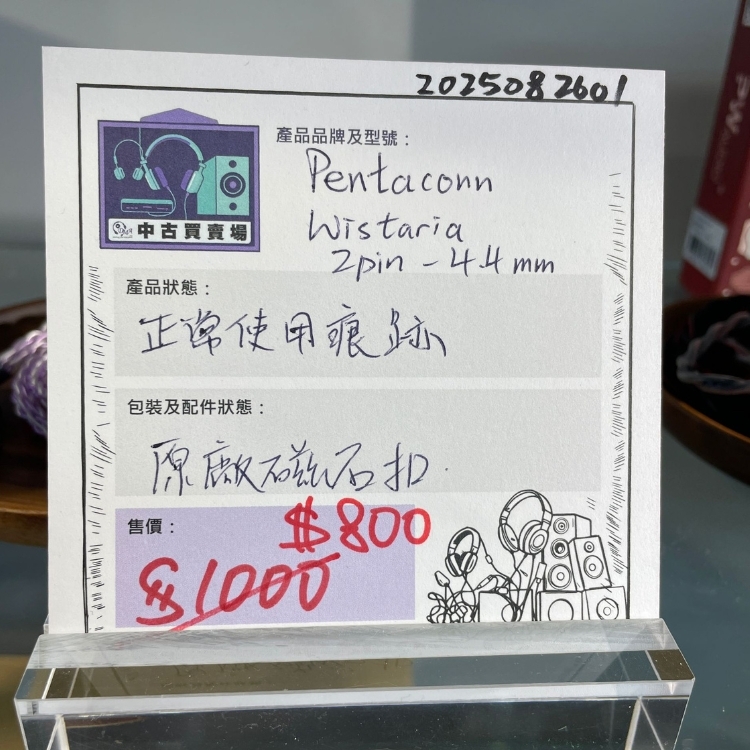 2025082601
中古買賣場
產品品牌及型號：
Pentaconn
Wistaria
2pin - 4.4 mm
產品狀態：
正常使用痕跡
包裝及配件狀態：
原廠磁石扣
售價：
$800
$1000
PW